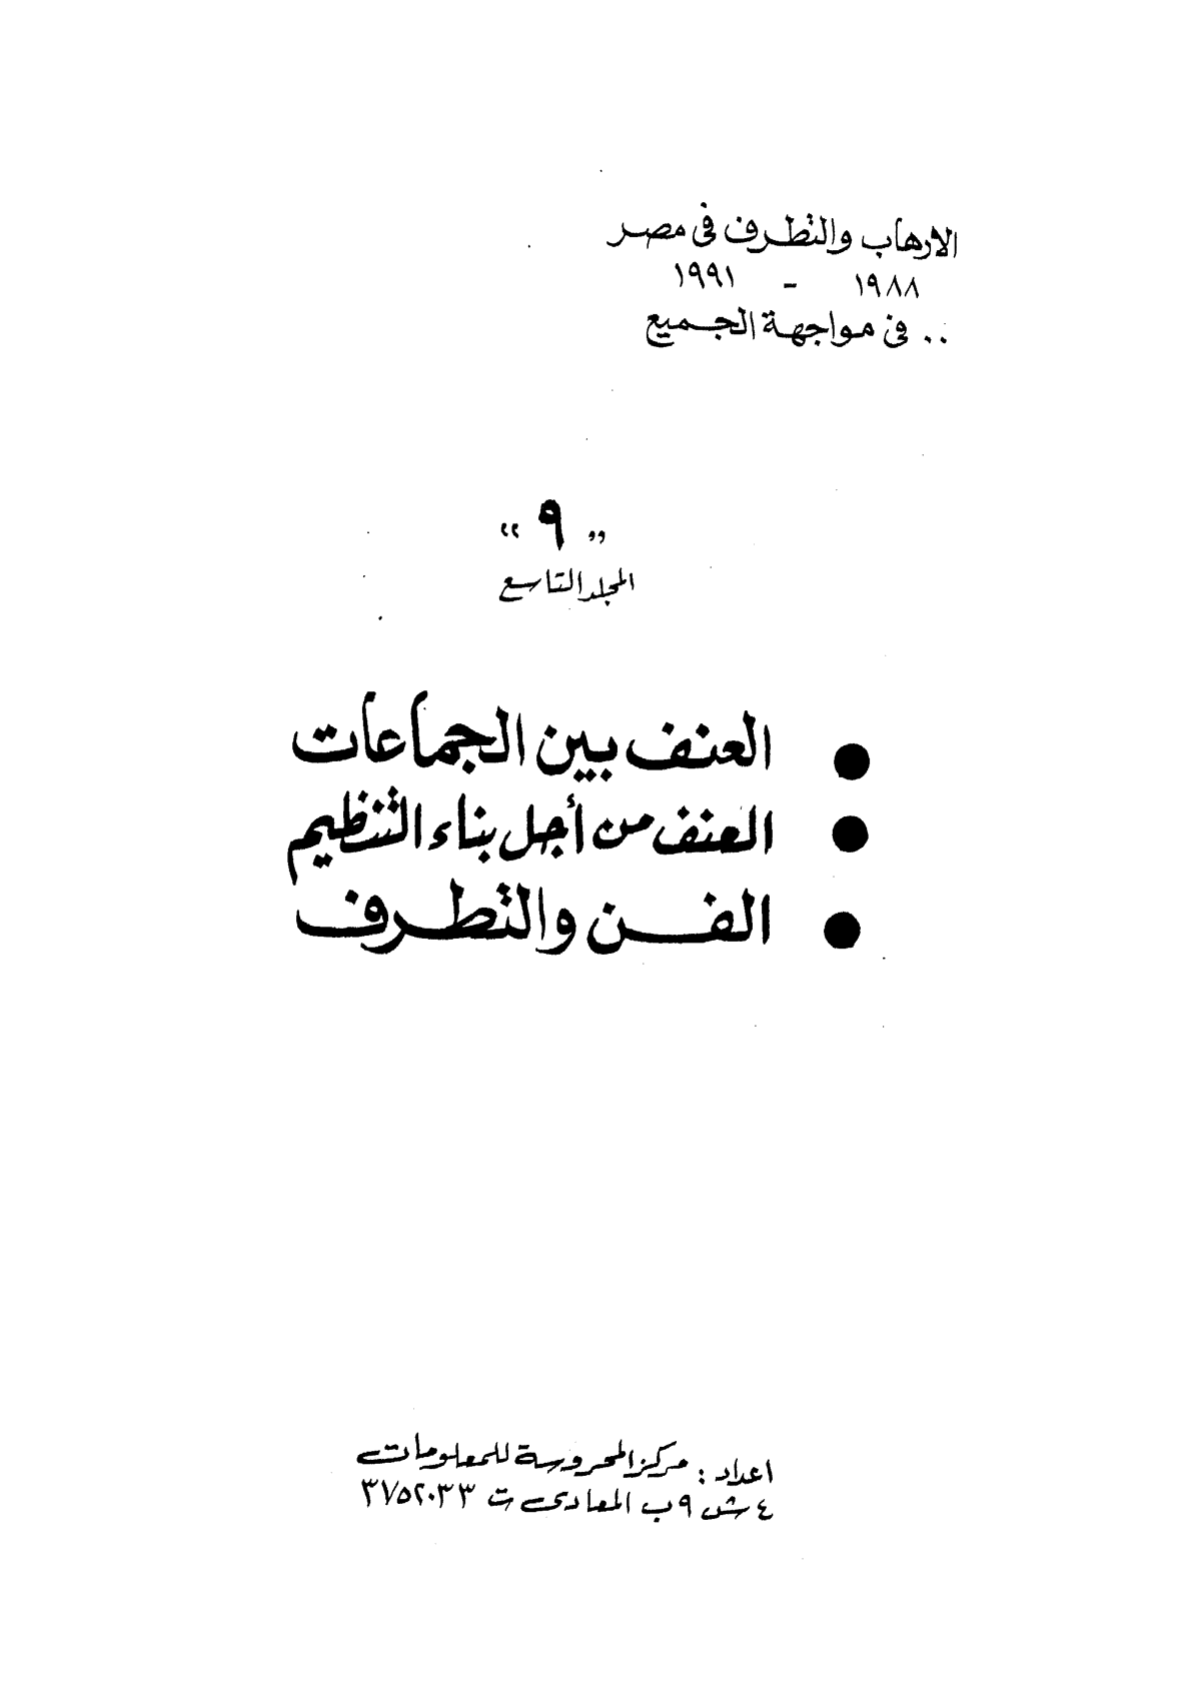 الارهاب والتطرف فى مصر
١٩٨٨ - ١٩٩١
.. فى مواجهة الجميع
" ٩ "
المجلد التاسع
● العنف بين الجماعات
● العنف من أجل بناء التنظيم
● الفن والتطرف
اعداد : مركز المحروسة للمعلومات
٤ ش ٩ب المعادى ت ٣٧٥٢٠٣٣